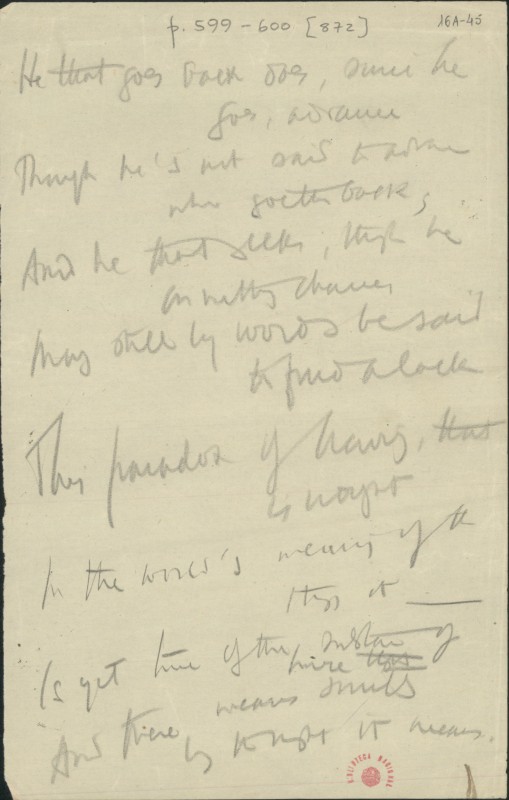 p. 599-600 [872]
16A-45
He that goes back does, since he
goes, advance
Though he's not said to advance
who goeth back;
And he that seeks, though he
on nothing chances,
May still by words be said
to find a lack.
This paradox of having, that
is nought
In the world's meaning of the
things it ____
Is yet true of the substance of
means
And there
is nought it means.
BIBLIOTECA NACIONAL